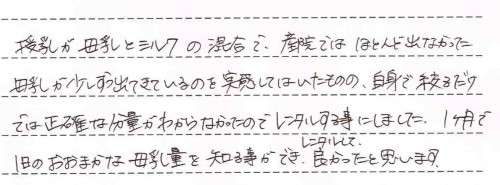 授乳が母乳とミルクの混合で、産院ではほとんど出なかった
母乳が少しずつ出てきているのを実感してはいたものの、自身で絞るだけ
では正確な分量がわからなかったのでレンタルする事にしました。1ヶ月で
レンタルして、
1日のおおまかな母乳量を知る事ができ、良かったと思います